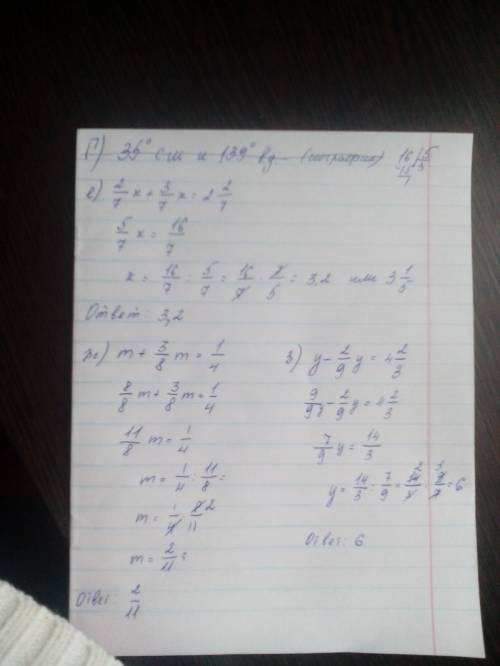 Г) 35° с.ш и 139° вд -
16 | 5
15 3
1
е) 2/7 x + 3/7 x = 2 2/7
5/7 x = 16/7
x = 16/7 : 5/7 = 16/7 · 7/5 = 3,2 или 3 1/5
Ответ: 3,2
ж) m + 3/8 m = 1/4
8/8 m + 3/8 m = 1/4
11/8 m = 1/4
m = 1/4 : 11/8 =
m = 1/4 · 8/11 2
m = 2/11
Ответ: 2/11
з) y - 2/9 y = 4 2/3
9/9 y - 2/9 y = 4 2/3
7/9 y = 14/3
y = 14/3 : 7/9 = 14/3 2 · 9/7 3 = 6
Ответ: 6